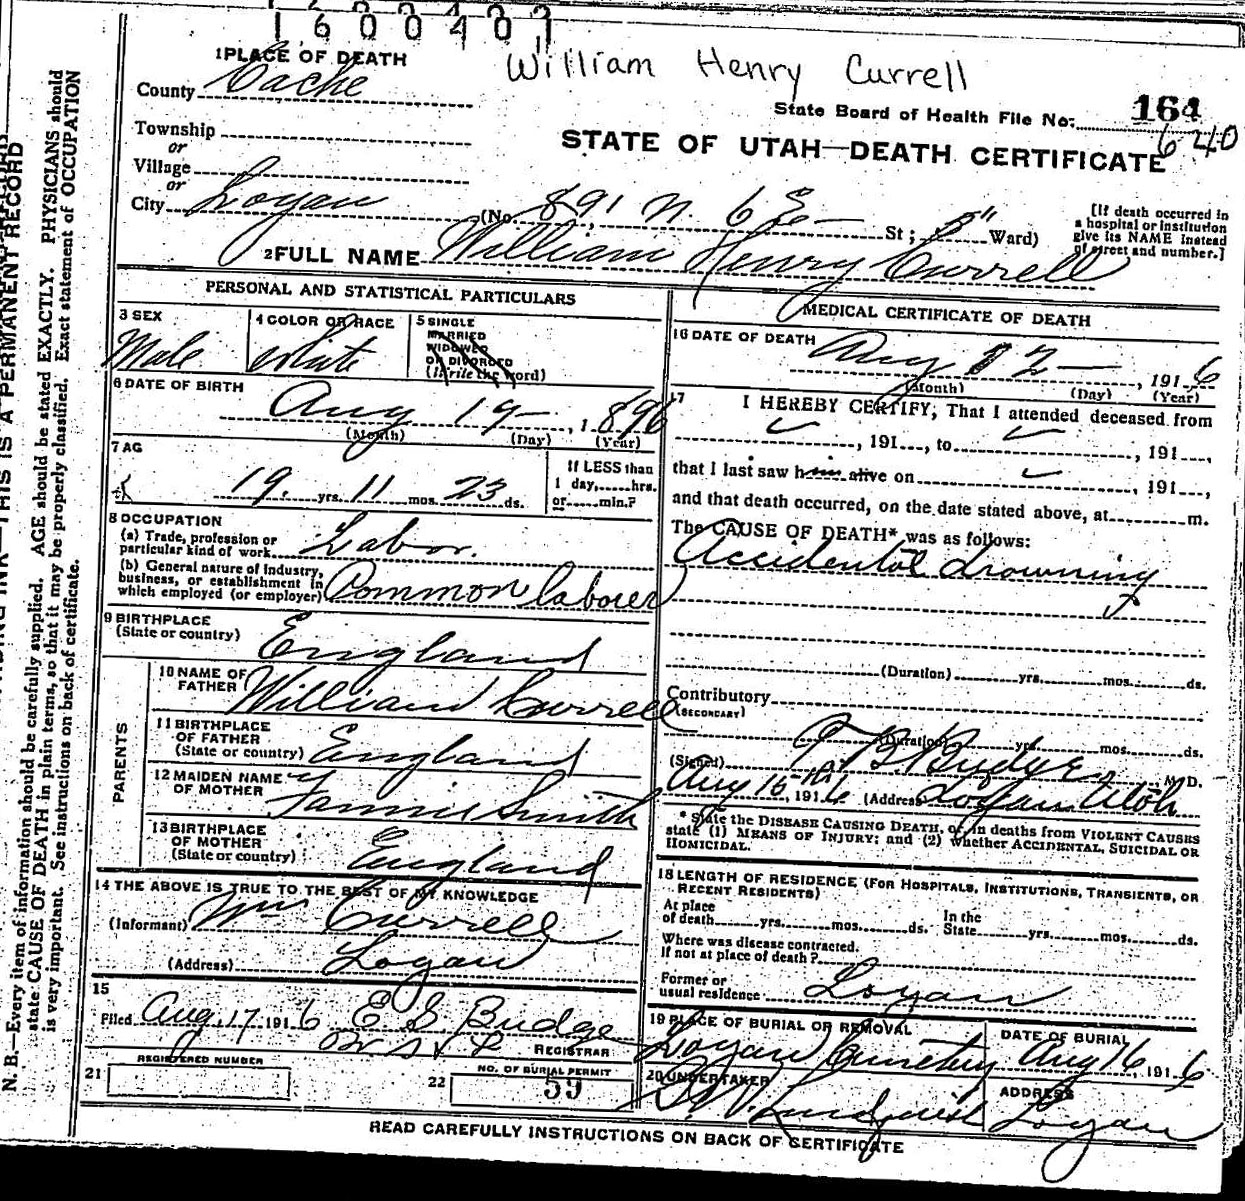 1600407
William Henry Currell
1 PLACE OF DEATH
County Cache
State Board of Health File No. 164
640
Township
or
Village
or
City Logan
STATE OF UTAH—DEATH CERTIFICATE
(No. 891 N. 6 E— St; 5" Ward)
[If death occurred in a hospital or institution give its NAME instead of street and number.]
2 FULL NAME William Henry Currell
PERSONAL AND STATISTICAL PARTICULARS
3 SEX
Male
4 COLOR OR RACE
White
5 SINGLE
MARRIED
WIDOWED
OR DIVORCED
(Write the word)
6 DATE OF BIRTH
Aug 19— , 1896
(Month) (Day) (Year)
7 AG
19 yrs. 11 mos. 23 ds.
If LESS than
1 day,......hrs.
or......min.?
8 OCCUPATION
(a) Trade, profession or
particular kind of work Labor.
(b) General nature of Industry,
business, or establishment in
which employed (or employer) Common laborer
9 BIRTHPLACE
(State or country) England
PARENTS
10 NAME OF
FATHER William Currell
11 BIRTHPLACE
OF FATHER
(State or country) England
12 MAIDEN NAME
OF MOTHER Fannie Smith
13 BIRTHPLACE
OF MOTHER
(State or country) England
14 THE ABOVE IS TRUE TO THE BEST OF MY KNOWLEDGE
(Informant) Wm Currell
(Address) Logan
15
Filed Aug. 17 1916 E S Budge
REGISTRAR
REGISTERED NUMBER
21
NO. OF BURIAL PERMIT
22 59
MEDICAL CERTIFICATE OF DEATH
16 DATE OF DEATH
Aug 12— , 1916
(Month) (Day) (Year)
17 I HEREBY CERTIFY, That I attended deceased from
, 191...., to , 191....,
that I last saw him alive on , 191....,
and that death occurred, on the date stated above, at m.
The CAUSE OF DEATH* was as follows:
Accidental drowning
(Duration) yrs. mos. ds.
Contributory
(SECONDARY)
(Duration) yrs. mos. ds.
(Signed) Budge M.D.
Aug 15 1916 (Address) Logan Utah
* State the DISEASE CAUSING DEATH, or, in deaths from VIOLENT CAUSES
state (1) MEANS OF INJURY; and (2) whether ACCIDENTAL, SUICIDAL OR
HOMICIDAL.
18 LENGTH OF RESIDENCE (FOR HOSPITALS, INSTITUTIONS, TRANSIENTS, OR
RECENT RESIDENTS)
At place
of death yrs. mos. ds. In the State yrs. mos. ds.
Where was disease contracted.
If not at place of death?
Former or
usual residence Logan
19 PLACE OF BURIAL OR REMOVAL
Logan Cemetery
DATE OF BURIAL
Aug 16 1916
20 UNDERTAKER
Lindquist
ADDRESS
Logan
READ CAREFULLY INSTRUCTIONS ON BACK OF CERTIFICATE
THIS IS A PERMANENT RECORD
N. B.—Every item of information should be carefully supplied. AGE should be stated EXACTLY. PHYSICIANS should
state CAUSE OF DEATH in plain terms, so that it may be properly classified. Exact statement of OCCUPATION
is very important. See instructions on back of certificate.